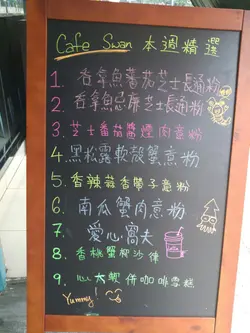 Cafe Swan 本週精選
1. 吞拿魚蕃茄芝士長通粉
2. 吞拿魚忌廉芝士長通粉
3. 芝士番茄醬煙肉意粉
4. 黑松露軟殼蟹意粉
5. 香辣蒜香帶子意粉
6. 南瓜蟹肉意粉
7. 愛心窩夫
8. 香桃蟹柳沙律
9. 心太軟併咖啡雪糕
Yummy!